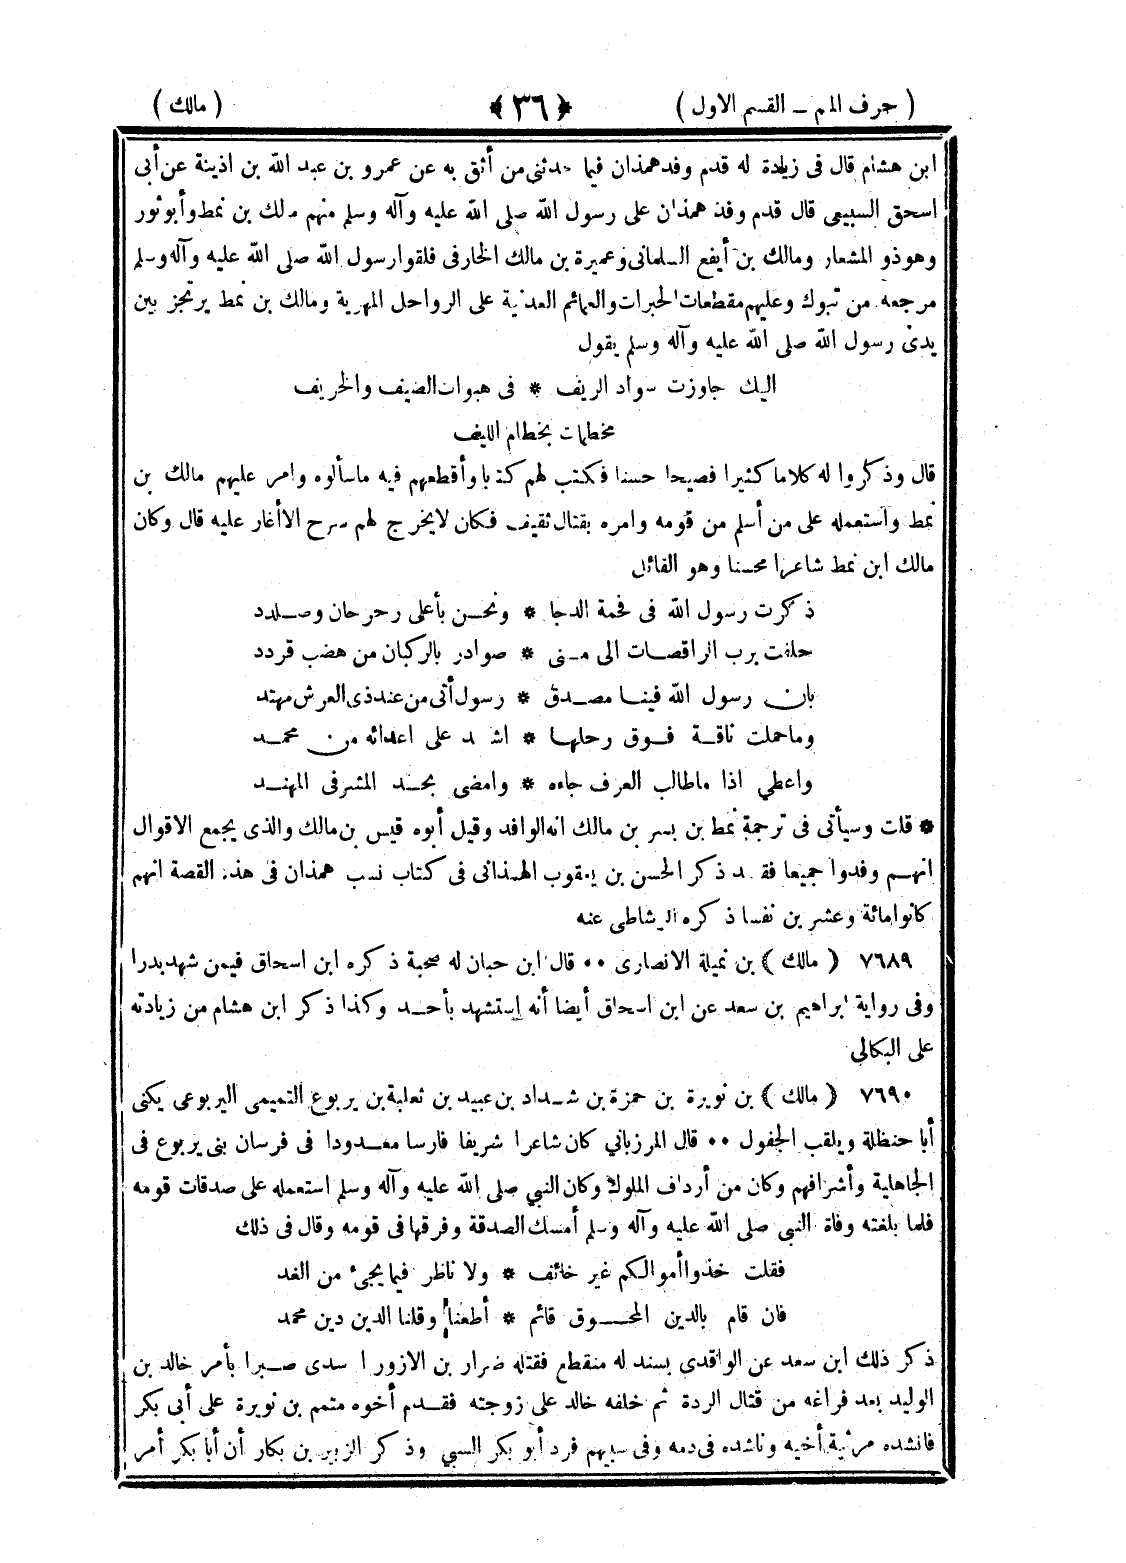 ( حرف الميم ــ القسم الاول ) ﴿ ٣٦ ﴾ ( مالك )
ابن هشام قال فى زيادة له قدم وفد همذان فيما حدثنى من أثق به عن عمرو بن عبد الله بن اذينة عن أبى
اسحق السبيعى قال قدم وفد همذان على رسول الله صلى الله عليه وآله وسلم منهم مالك بن نمط وأبو ثور
وهو ذو المشعار ومالك بن أيفع السلمانى وعميرة بن مالك الخارفى فلقوا رسول الله صلى الله عليه وآله وسلم
مرجعه من تبوك وعليهم مقطعات الحبرات والعمائم العدنية على الرواحل المهرية ومالك بن نمط يرتجز بين
يدى رسول الله صلى الله عليه وآله وسلم يقول
اليك جاوزت سواد الريف * فى هبوات الصيف والخريف
مخطمات بخطام الليف
قال وذكروا له كلاما كثيرا فصيحا حسنا فكتب لهم كتابا وأقطعهم فيه ماسألوه وامر عليهم مالك بن
نمط واستعمله على من أسلم من قومه وامره بقتال ثقيف فكان لايخرج لهم سرح الا أغار عليه قال وكان
مالك ابن نمط شاعرا محسنا وهو القائل
ذكرت رسول الله فى فحمة الدجا * ونحــن بأعلى رحرحان وصــلدد
حلفت برب الراقصــات الى مــنى * صوادر بالركبان من هضب قردد
بان رسول الله فينــا مصــدق * رسول أتى من عند ذى العرش مهتد
وما حملت ناقــة فــوق رحلهــا * اشــد على اعدائه من محمــد
واعطي اذا ماطالب العرف جاءه * وامضى بحــد المشرفى المهنــد
* قلت وسيأتى فى ترجمة نمط بن بسر بن مالك انه الوافد وقيل أبوه قيس بن مالك والذى يجمع الاقوال
انهــم وفدوا جميعا فقــد ذكر الحسن بن يعقوب الهمذانى فى كتاب نسب همذان فى هذه القصة انهم
كانوا مائة وعشرين نفسا ذكره الرشاطى عنه
٧٦٨٩ ( مالك ) بن نميلة الانصارى ٠٠ قال ابن حبان له صحبة ذكره ابن اسحاق فيمن شهد بدرا
وفى رواية ابراهيم بن سعد عن ابن اسحاق أيضا أنه إستشهد بأحــد وكذا ذكر ابن هشام من زيادته
على البكالي
٧٦٩٠ ( مالك ) بن نويرة بن حمزة بن شــداد بن عبيد بن ثعلبة بن يربوع التميمى اليربوعى يكنى
أبا حنظلة ويلقب الجفول ٠٠ قال المرزباني كان شاعرا شريفا فارسا معــدودا فى فرسان بنى يربوع فى
الجاهلية وأشرافهم وكان من أرداف الملوك وكان النبي صلى الله عليه وآله وسلم استعمله على صدقات قومه
فلما بلغته وفاة النبى صلى الله عليه وآله وسلم أمسك الصدقة وفرقها فى قومه وقال فى ذلك
فقلت خذوا أموالكم غير خائف * ولا ناظر فيما يجئ من الغد
فان قام بالدين المحــوق قائم * أطعنا وقلنا الدين دين محمد
ذكر ذلك ابن سعد عن الواقدى بسند له منقطع فقتله ضرار بن الازور الاسدى صــبرا بأمر خالد بن
الوليد بعد فراغه من قتال الردة ثم خلفه خالد على زوجته فقــدم أخوه متمم بن نويرة على أبى بكر
فانشده مرثية أخيه وناشده فى دمه وفى سبيهم فرد أبو بكر السبي وذكر الزبير بن بكار أن أبا بكر أمر